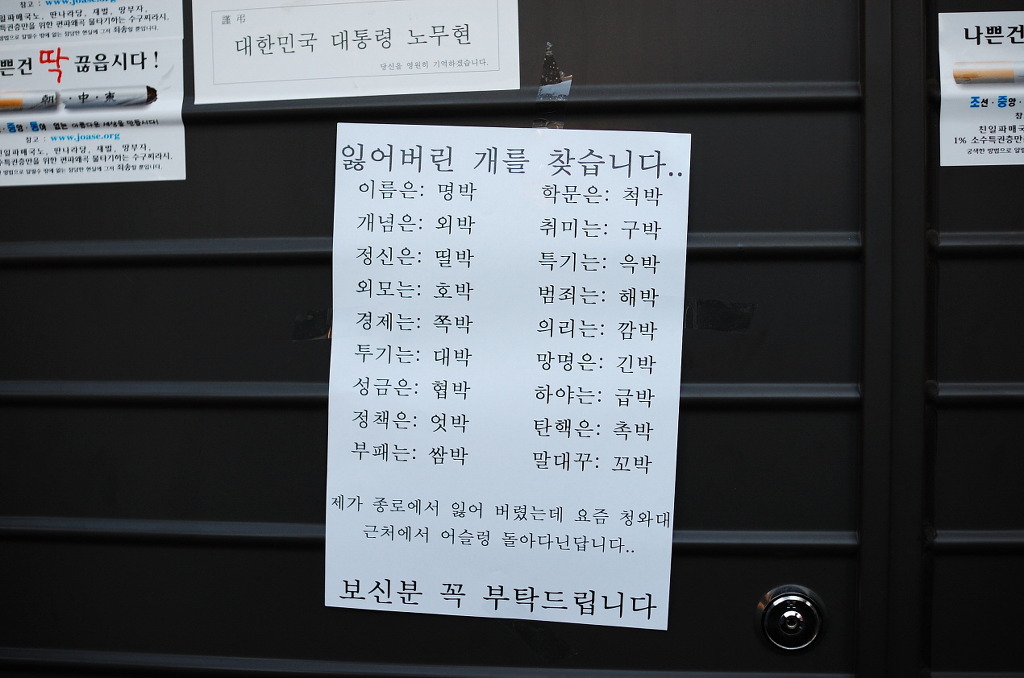 참고 : www.joase.org
친일파매국노, 딴나라당, 재벌, 땅부자,
소수특권층만을 위한 편파왜곡 물타기하는 수구찌라시.
쁜건 딱 끊읍시다!
朝·中·東
중앙·동아 없는 아름다운 세상을 만듭시다!
참고 : www.joase.org
친일파매국노, 딴나라당, 재벌, 땅부자,
소수특권층만을 위한 편파왜곡 물타기하는 수구찌라시.
謹弔
대한민국 대통령 노무현
당신을 영원히 기억하겠습니다.
나쁜건
조선·중앙
참
친일파매국
1% 소수특권층만
잃어버린 개를 찾습니다..
이름은: 명박
개념은: 외박
정신은: 띨박
외모는: 호박
경제는: 쪽박
투기는: 대박
성금은: 협박
정책은: 엇박
부패는: 쌈박
학문은: 척박
취미는: 구박
특기는: 윽박
범죄는: 해박
의리는: 깜박
망명은: 긴박
하야는: 급박
탄핵은: 촉박
말대꾸: 꼬박
제가 종로에서 잃어 버렸는데 요즘 청와대
근처에서 어슬렁 돌아다닌답니다..
보신분 꼭 부탁드립니다